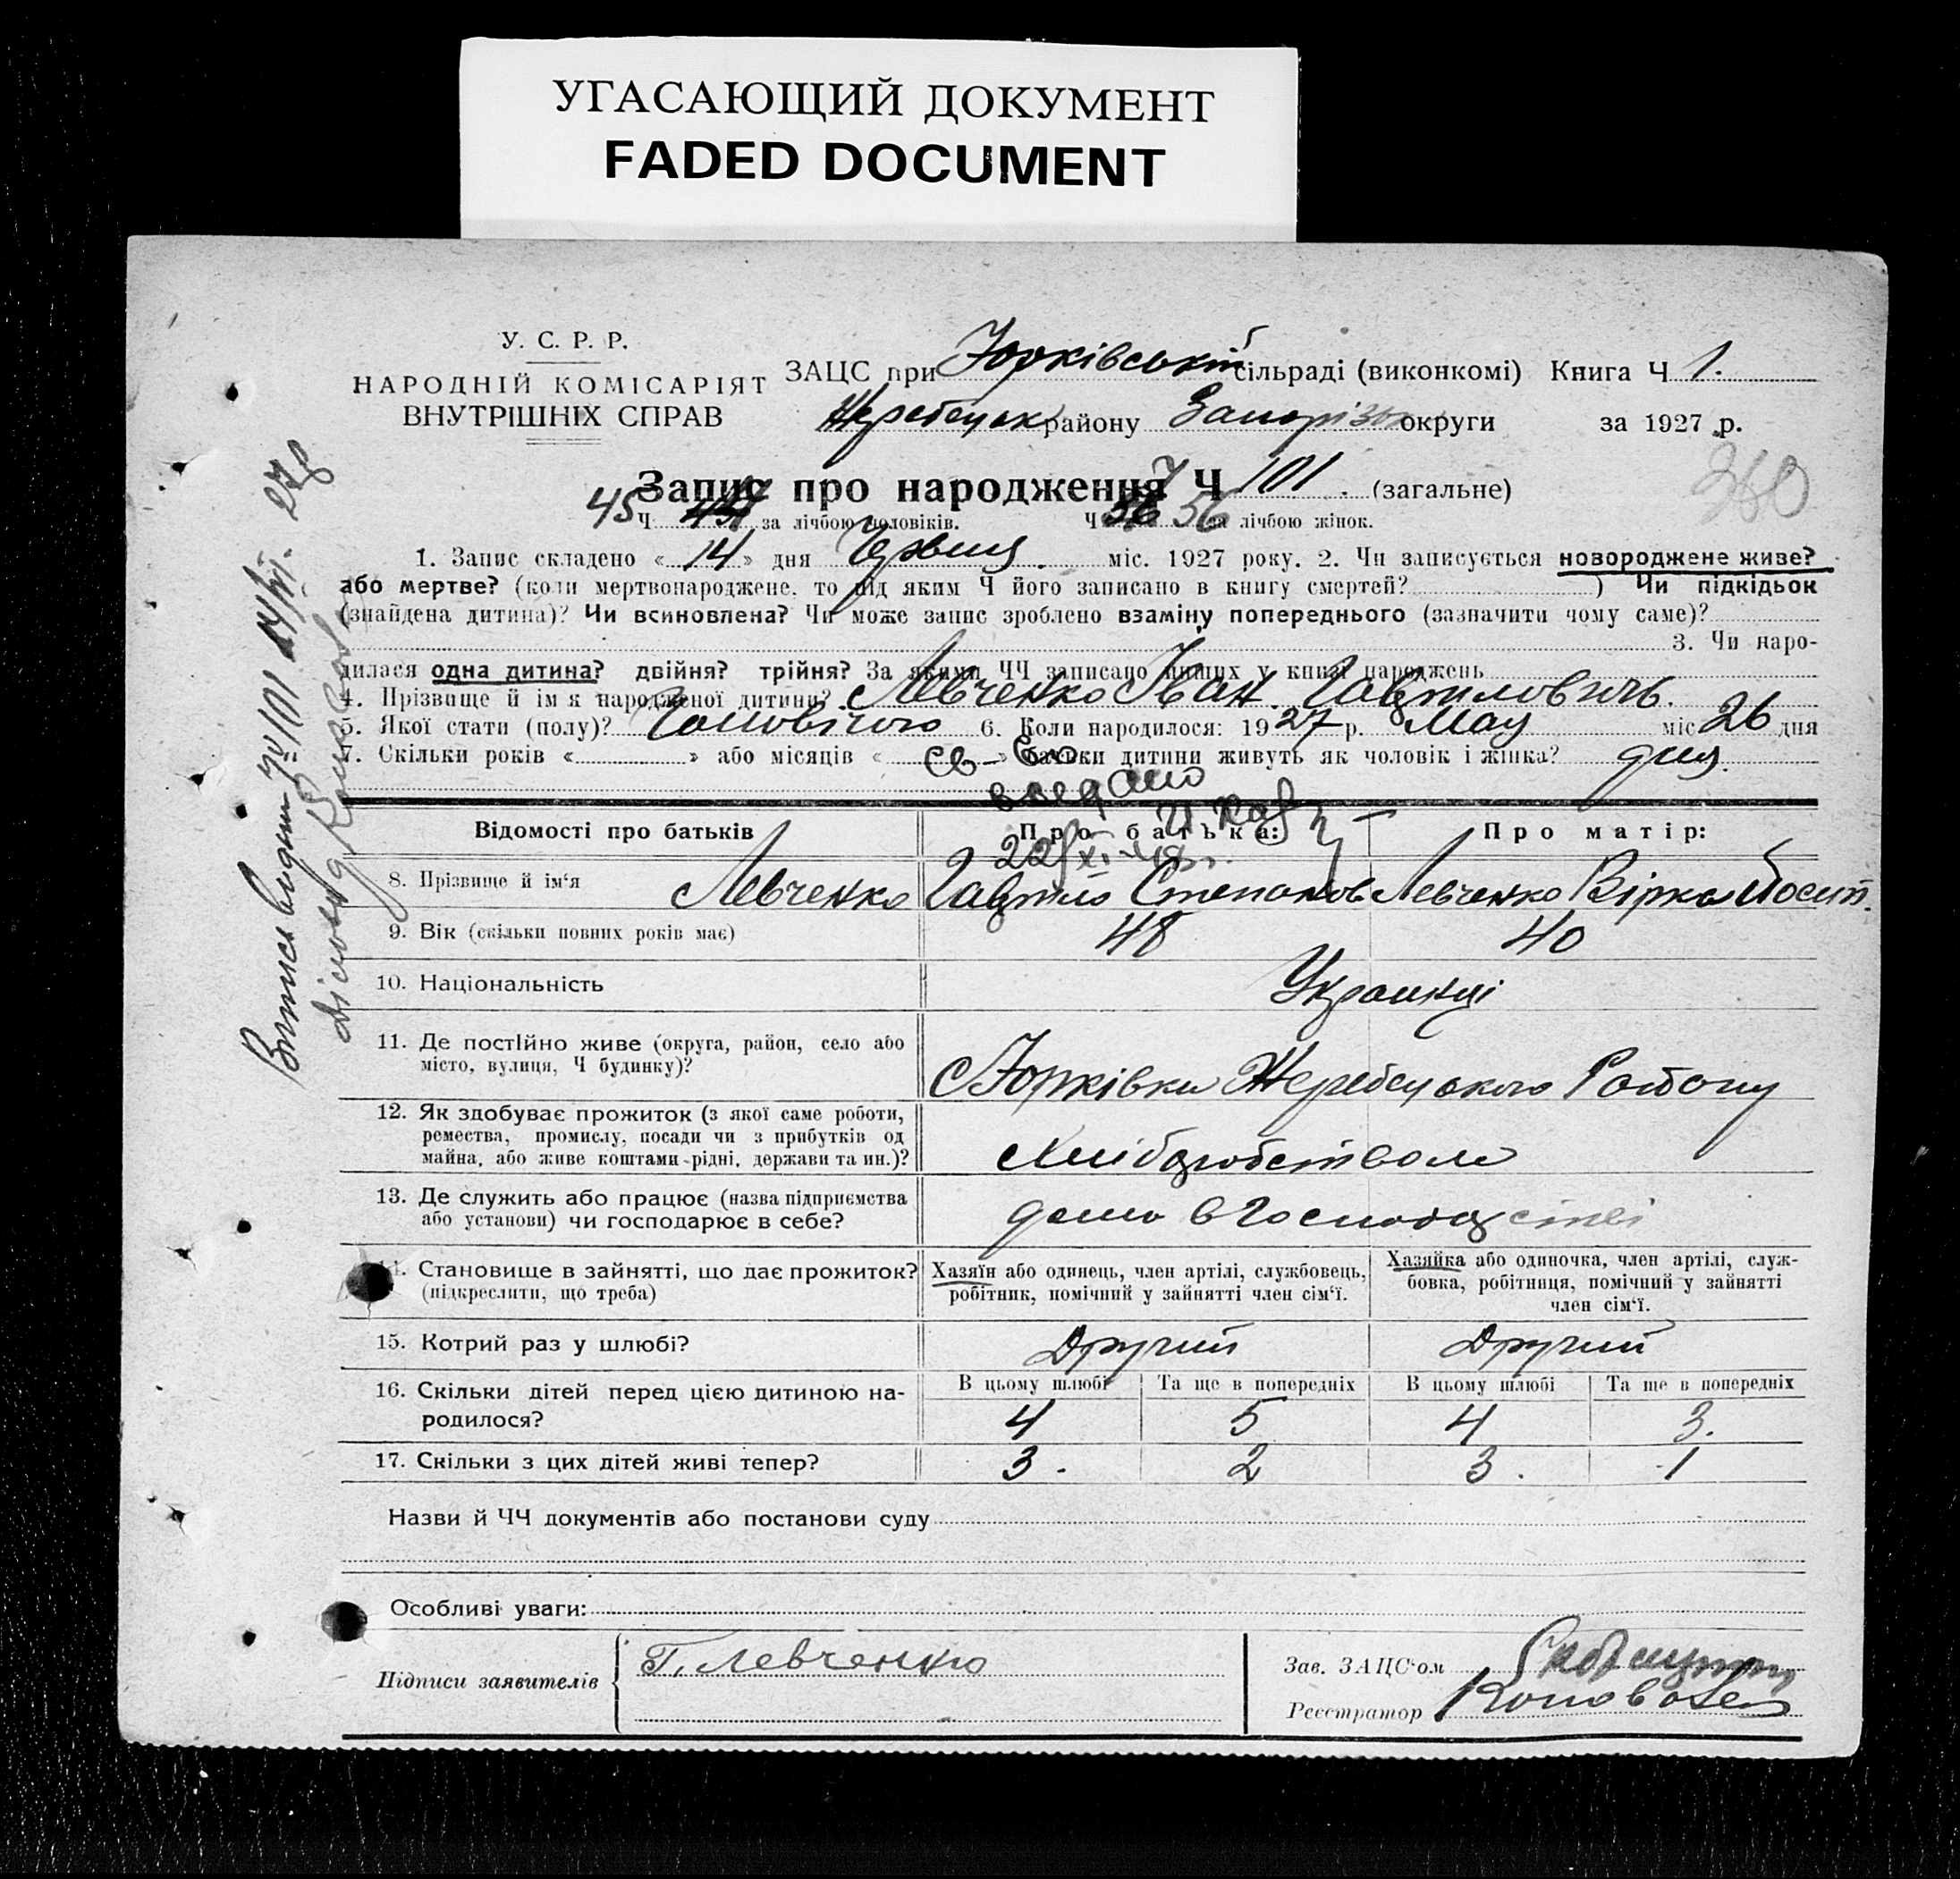 УГАСАЮЩИЙ ДОКУМЕНТ
FADED DOCUMENT
У. С. Р. Р.
НАРОДНІЙ КОМІСАРІЯТ
ВНУТРІШНІХ СПРАВ
ЗАЦС при Юрківській сільраді (виконкомі) Книга Ч 1.
Жеребецьк району Запорізьк округи за 1927 р.
360
Запис про народження Ч 101. (загальне)
45 Ч за лічбою чоловіків. Ч 56 56 за лічбою жінок.
1. Запис складено «14» дня Червця міс. 1927 року. 2. Чи записується новороджене живе?
або мертве? (коли мертвонароджене, то під яким Ч його записано в книгу смертей? ) Чи підкідьок
(знайдена дитина)? Чи всиновлена? Чи може запис зроблено взаміну попереднього (зазначити чому саме)?
3. Чи наро-
дилася одна дитина? двійня? трійня? За якими ЧЧ записано інших у книзі народжень
4. Прізвище й ім'я народженої дитини? Левченко Іван Гаврилович.
5. Якої стати (полу)? Чоловічого 6. Коли народилося: 1927 р. Мая міс 26 дня
7. Скільки років « » або місяців « » батьки дитини живуть як чоловік і жінка?
св-во
видано
22/XI-48г.
Відомості про батьків Про батька: Про матір:
8. Прізвище й ім'я Левченко Гаврило Степанов Левченко Вірка Йосип.
9. Вік (скільки повних років має) 48 40
10. Національність Украинці
11. Де постІйно живе (округа, район, село або
місто, вулиця, Ч будинку)?
С Юрківка Жеребецького Району
12. Як здобуває прожиток (з якої саме роботи,
ремества, промислу, посади чи з прибутків од
майна, або живе коштами рідні, держави та ин.)?
Хліборобством
13. Де служить або працює (назва підприємства
або установи) чи господарює в себе?
дома в Господарстві
14. Становище в зайнятті, що дає прожиток?
(підкреслити, що треба)
Хазяїн або одинець, член артілі, службовець,
робітник, помічний у зайнятті член сім'ї.
Хазяйка або одиночка, член артілі, служ-
бовка, робітниця, помічний у зайнятті
член сім'ї.
15. Котрий раз у шлюбі? Другий Другий
16. Скільки дітей перед цією дитиною на-
родилося?
В цьому шлюбі Та ще в попередніх В цьому шлюбі Та ще в попередніх
4 5 4 3.
17. Скільки з цих дітей живі тепер? 3. 2 3. 1
Назви й ЧЧ документів або постанови суду
Особливі уваги:
Підписи заявителів Г. Левченко
Зав. ЗАЦС'ом
Реєстратор Коновал
Випис видан 101 27р